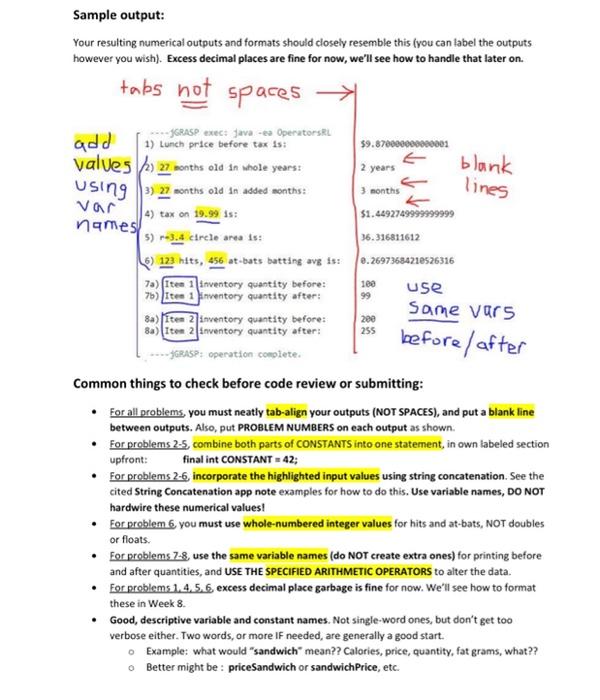 Sample output:
Your resulting numerical outputs and formats should closely resemble this (you can label the outputs
however you wish). Excess decimal places are fine for now, we'll see how to handle that later on.
tabs not spaces
add
values
using
var
names
----jGRASP exec: java -ea OperatorsRL
1) Lunch price before tax is: $9.87000000000001
2) 27 months old in whole years: 2 years
3) 27 months old in added months: 3 months
blank
lines
4) tax on 19.99 is: $1.4492749999999999
5) r=3.4 circle area is: 36.316811612
6) 123 hits, 456 at-bats batting avg is: 0.26973684210526316
7a) Item 1 inventory quantity before: 100
7b) Item 1 inventory quantity after: 99
8a) Item 2 inventory quantity before: 200
8a) Item 2 inventory quantity after: 255
use
same vars
before/after
----jGRASP: operation complete.
Common things to check before code review or submitting:
• For all problems, you must neatly tab-align your outputs (NOT SPACES), and put a blank line
between outputs. Also, put PROBLEM NUMBERS on each output as shown.
• For problems 2-5, combine both parts of CONSTANTS into one statement, in own labeled section
upfront: final int CONSTANT = 42;
• For problems 2-6, incorporate the highlighted input values using string concatenation. See the
cited String Concatenation app note examples for how to do this. Use variable names, DO NOT
hardwire these numerical values!
• For problem 6, you must use whole-numbered integer values for hits and at-bats, NOT doubles
or floats.
• For problems 7-8, use the same variable names (do NOT create extra ones) for printing before
and after quantities, and USE THE SPECIFIED ARITHMETIC OPERATORS to alter the data.
• For problems 1, 4, 5, 6, excess decimal place garbage is fine for now. We'll see how to format
these in Week 8.
• Good, descriptive variable and constant names. Not single-word ones, but don't get too
verbose either. Two words, or more IF needed, are generally a good start.
o Example: what would "sandwich" mean?? Calories, price, quantity, fat grams, what??
o Better might be : priceSandwich or sandwichPrice, etc.